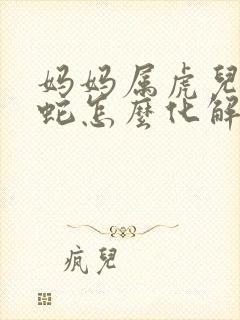 妈妈属虎兒
蛇怎麼化解
疯兒